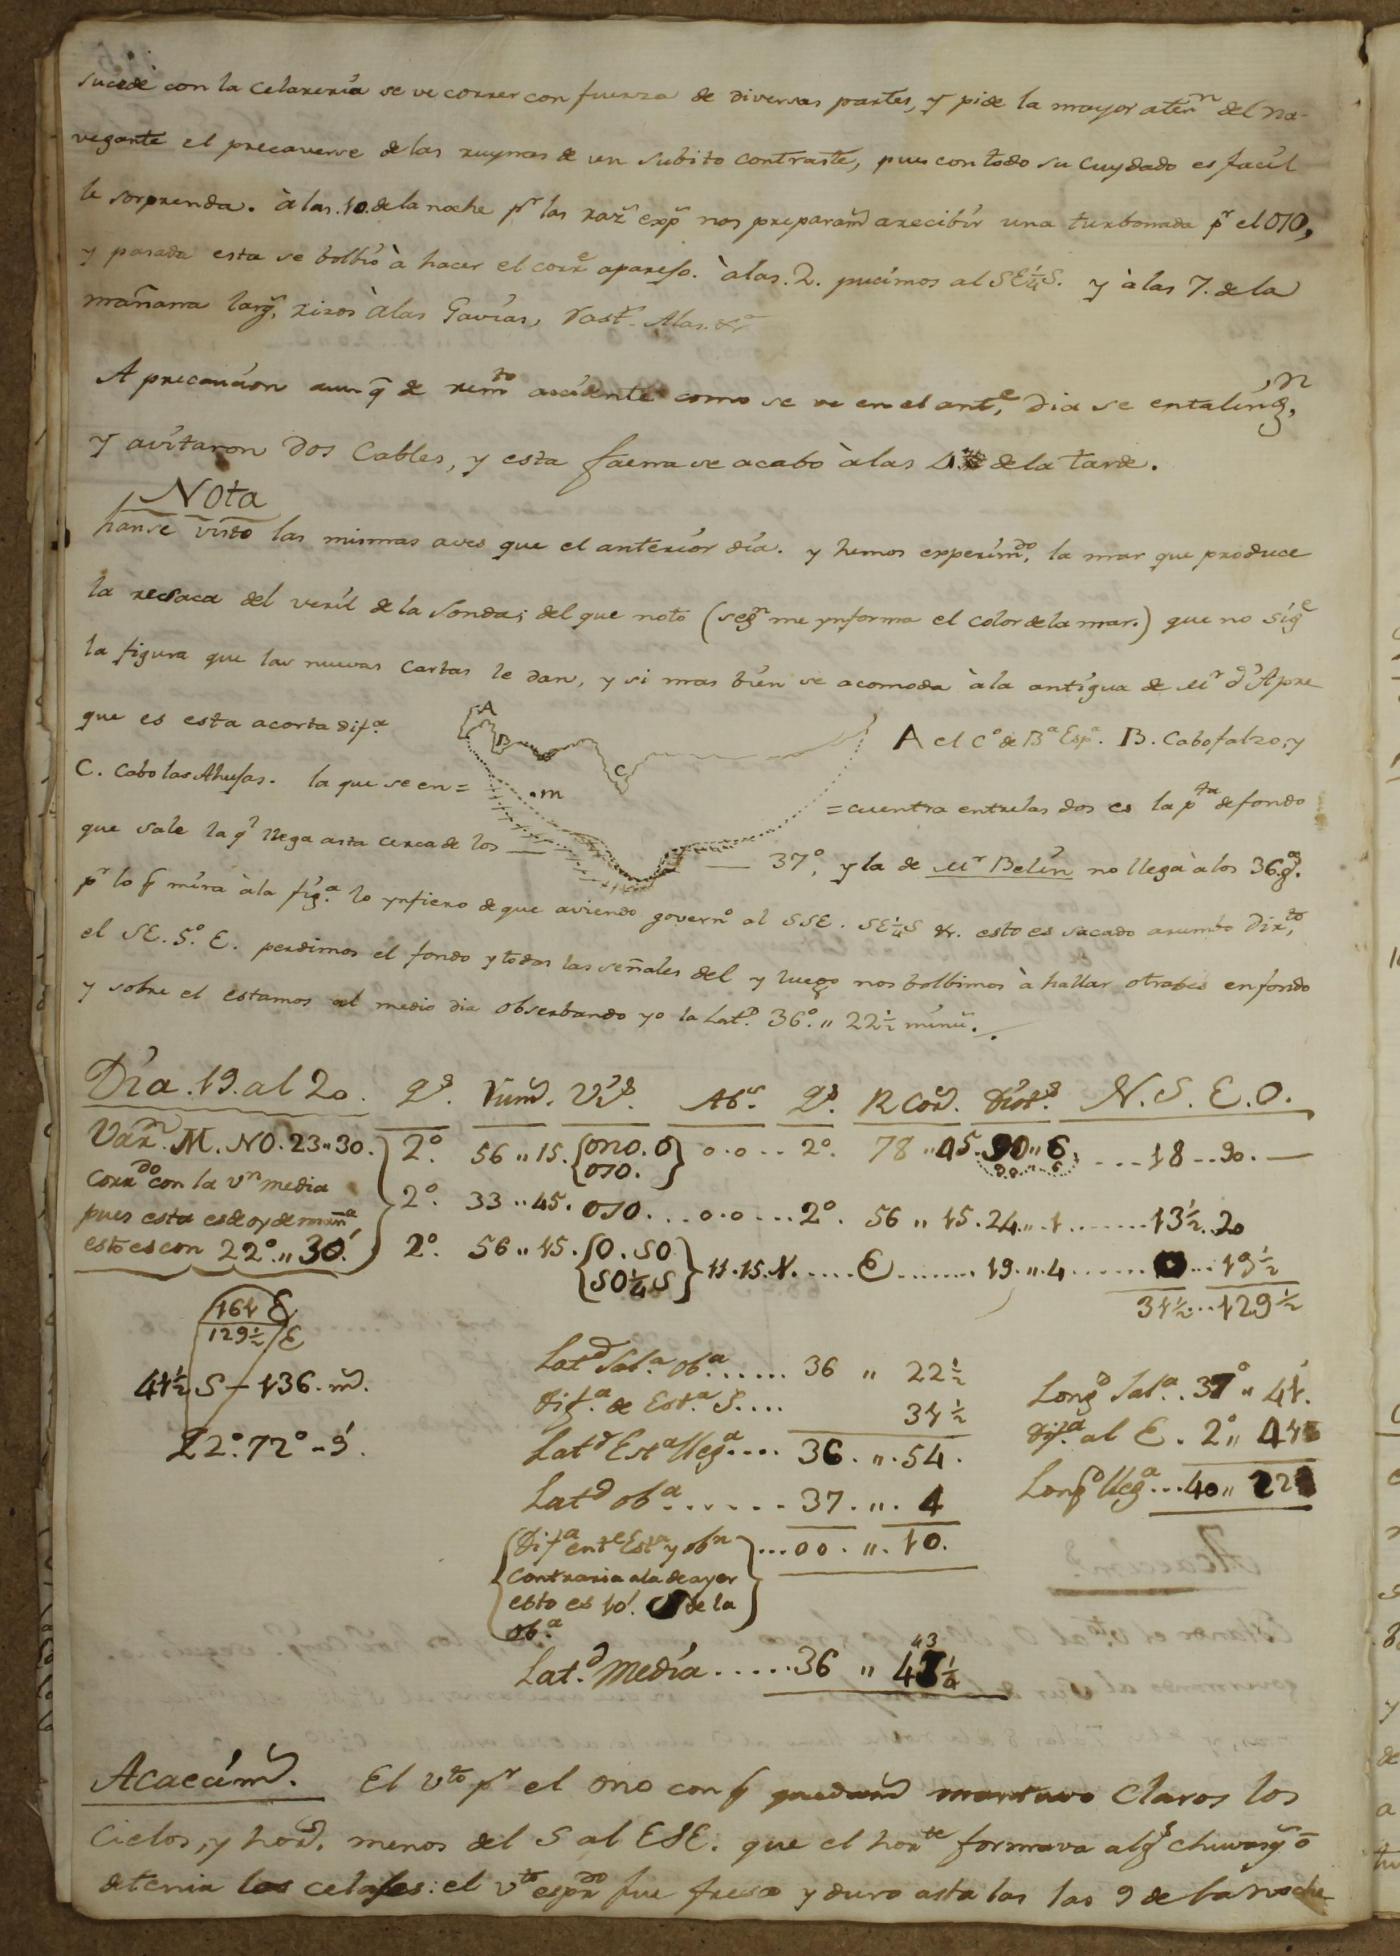 sucede con la Celaxeria se ve correr con fuerza de diversas partes, y pide la mayor atenn del na-
vegante el precaverse de las ruynas de un subito contraste, pues con todo su cuydado es facil
le sorprenda. à las .10. de la noche pr las razs expr nos preparamd a recibir una turbonada pr el OSO,
y pasada esta se bolbio à hacer el corre aparejo. à las .2. pucimos al SE¼S. y à las 7. de la
mañana larg. rizos à las Gavias, Rast. Alas. &ra
A precaucion aunq de remto accidente como se ve en el ante. dia se entalingn,
y avitaron Dos Cables, y esta faena se acabo à las 4. de la tarde.
Nota
hanse visto las mismas aves que el anterior dia. y hemos experimdo, la mar que produce
la resaca del veril de la sonda; del que noto (segn me ynforma el color de la mar.) que no sige
la figura que las nuevas cartas le dan, y si mas bien se acomoda à la antigua de Mr d'Apre
que es esta a corta difa.
A
B
C
.m
A el Co de Ba Espa. B. Cabo falzo, y
C. Cabo las Ahujas. la que se en =
= cuentra entrelas dos es la pta de fondo
que sale la q llega asta cerca de los — — 37°, y la de Mr Belin no llega à los 36.gs.
pr lo q mira à la figa. lo ynfiero de que aviendo governo al SSE. SE¼S &. esto es sacado a rumbo Dirto,
el SE. 5° E. perdimos el fondo y todas las señales del y luego nos bolbimos à hallar otrabes en fondo
y sobre el estamos al medio dia observando yo la Latd. 36°. " 22½ minu.
Dia .19. al 20. qs. Rumd. Vs. Abs. qs. R Cord. Distd. N. S. E. O.
Varn. M. NO. 23 " 30. 2° 56 .. 15. {ONO. O OSO.} o.o... 2°. 78 " 45. 90 " 6. ...18 ..90. —
90 " 6
Corrdo con la vn media 2°. 33 .. 45. OSO... o.o ... 2°. 56 " 15. 24. ". 1 ....... 13½ .. 20
pues esta es de oy de mañna
esto es con 22°. " 30'. 2°. 56 " 15. {O. SO SO¼S} 11.15. N. ..... E ....... 19. ". 4 ...... 0 ... 19½
31½ ... 129½
161 E
129½ E
41½ S — 136. md.
L 2°. 72° - 9'.
Latd Sala. oba ...... 36 " 22½
difa. de Esta S. .... 31½
Latd Esta llega .... 36. ". 54.
Latd oba ...... 37. ". 4
{Difa ente Esta y obn contraria ala de ayer esto es 10'. S de la oba.} ... 00. ". 10.
Latd. Media ..... 36 " 43¼
43
Longd Sala. . 37° " 41'.
difa. al E. 2° " 41
Longd llega ... 40 " 22
Acaecimd. El vto pr el ONO con q quedamd mantuvo Claros los
Cielos, y hord. menos del S al ESE. que el horte formava algs chuvasqs ô
detenia los celajes: el vto espdo fue fresco y duro asta las las 9 de la noche